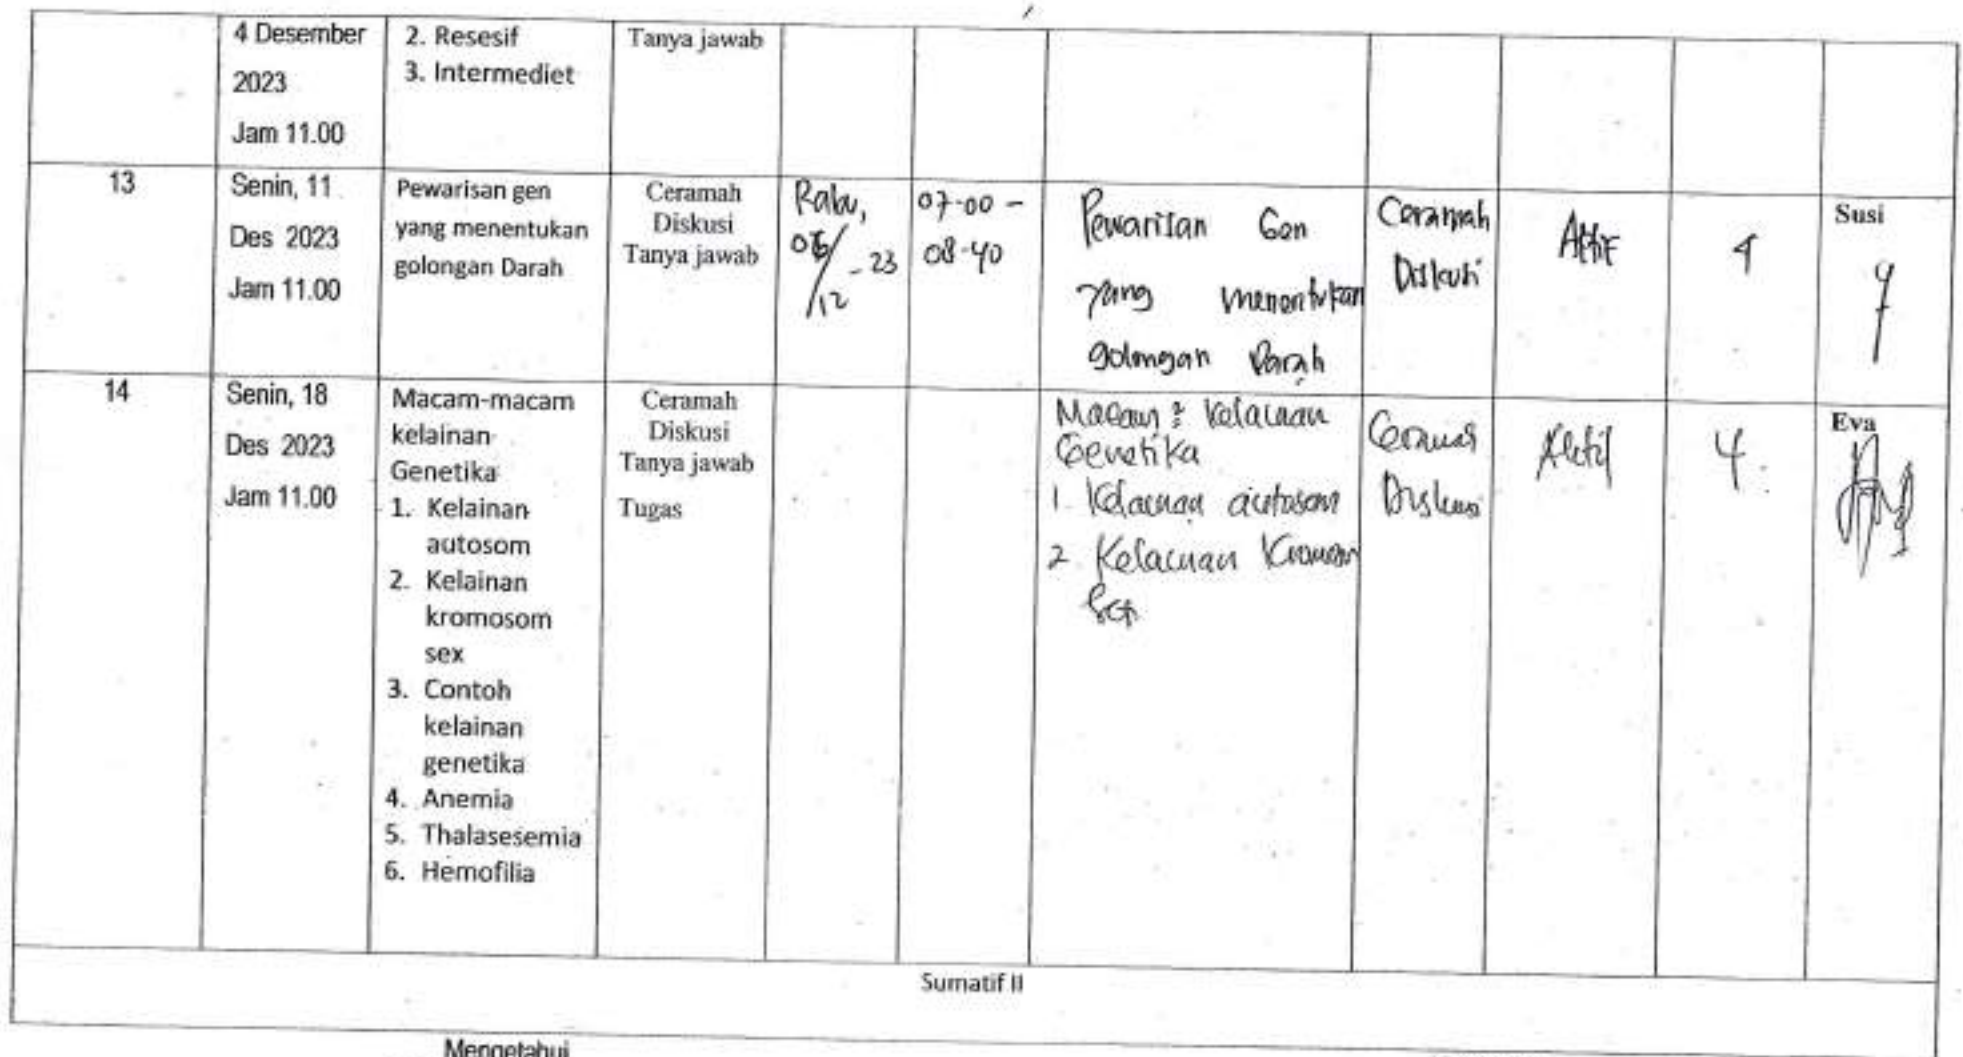 4 Desember
2023
Jam 11.00
2. Resesif
3. Intermediet
Tanya jawab
13
Senin, 11
Des 2023
Jam 11.00
Pewarisan gen
yang menentukan
golongan Darah
Ceramah
Diskusi
Tanya jawab
Rabu,
06/12 - 23
07-00 -
08-40
Pewarisan Gen
yang menentukan
golongan Darah
Ceramah
Diskusi
Aktif
4
Susi
14
Senin, 18
Des 2023
Jam 11.00
Macam-macam
kelainan
Genetika
1. Kelainan
autosom
2. Kelainan
kromosom
sex
3. Contoh
kelainan
genetika
4. Anemia
5. Thalasesemia
6. Hemofilia
Ceramah
Diskusi
Tanya jawab
Tugas
Macam 2 kelainan
Genetika
1. Kelainan autosom
2. Kelainan
Diskusi
Aktif
4.
Eva
Sumatif II
Mengetahui